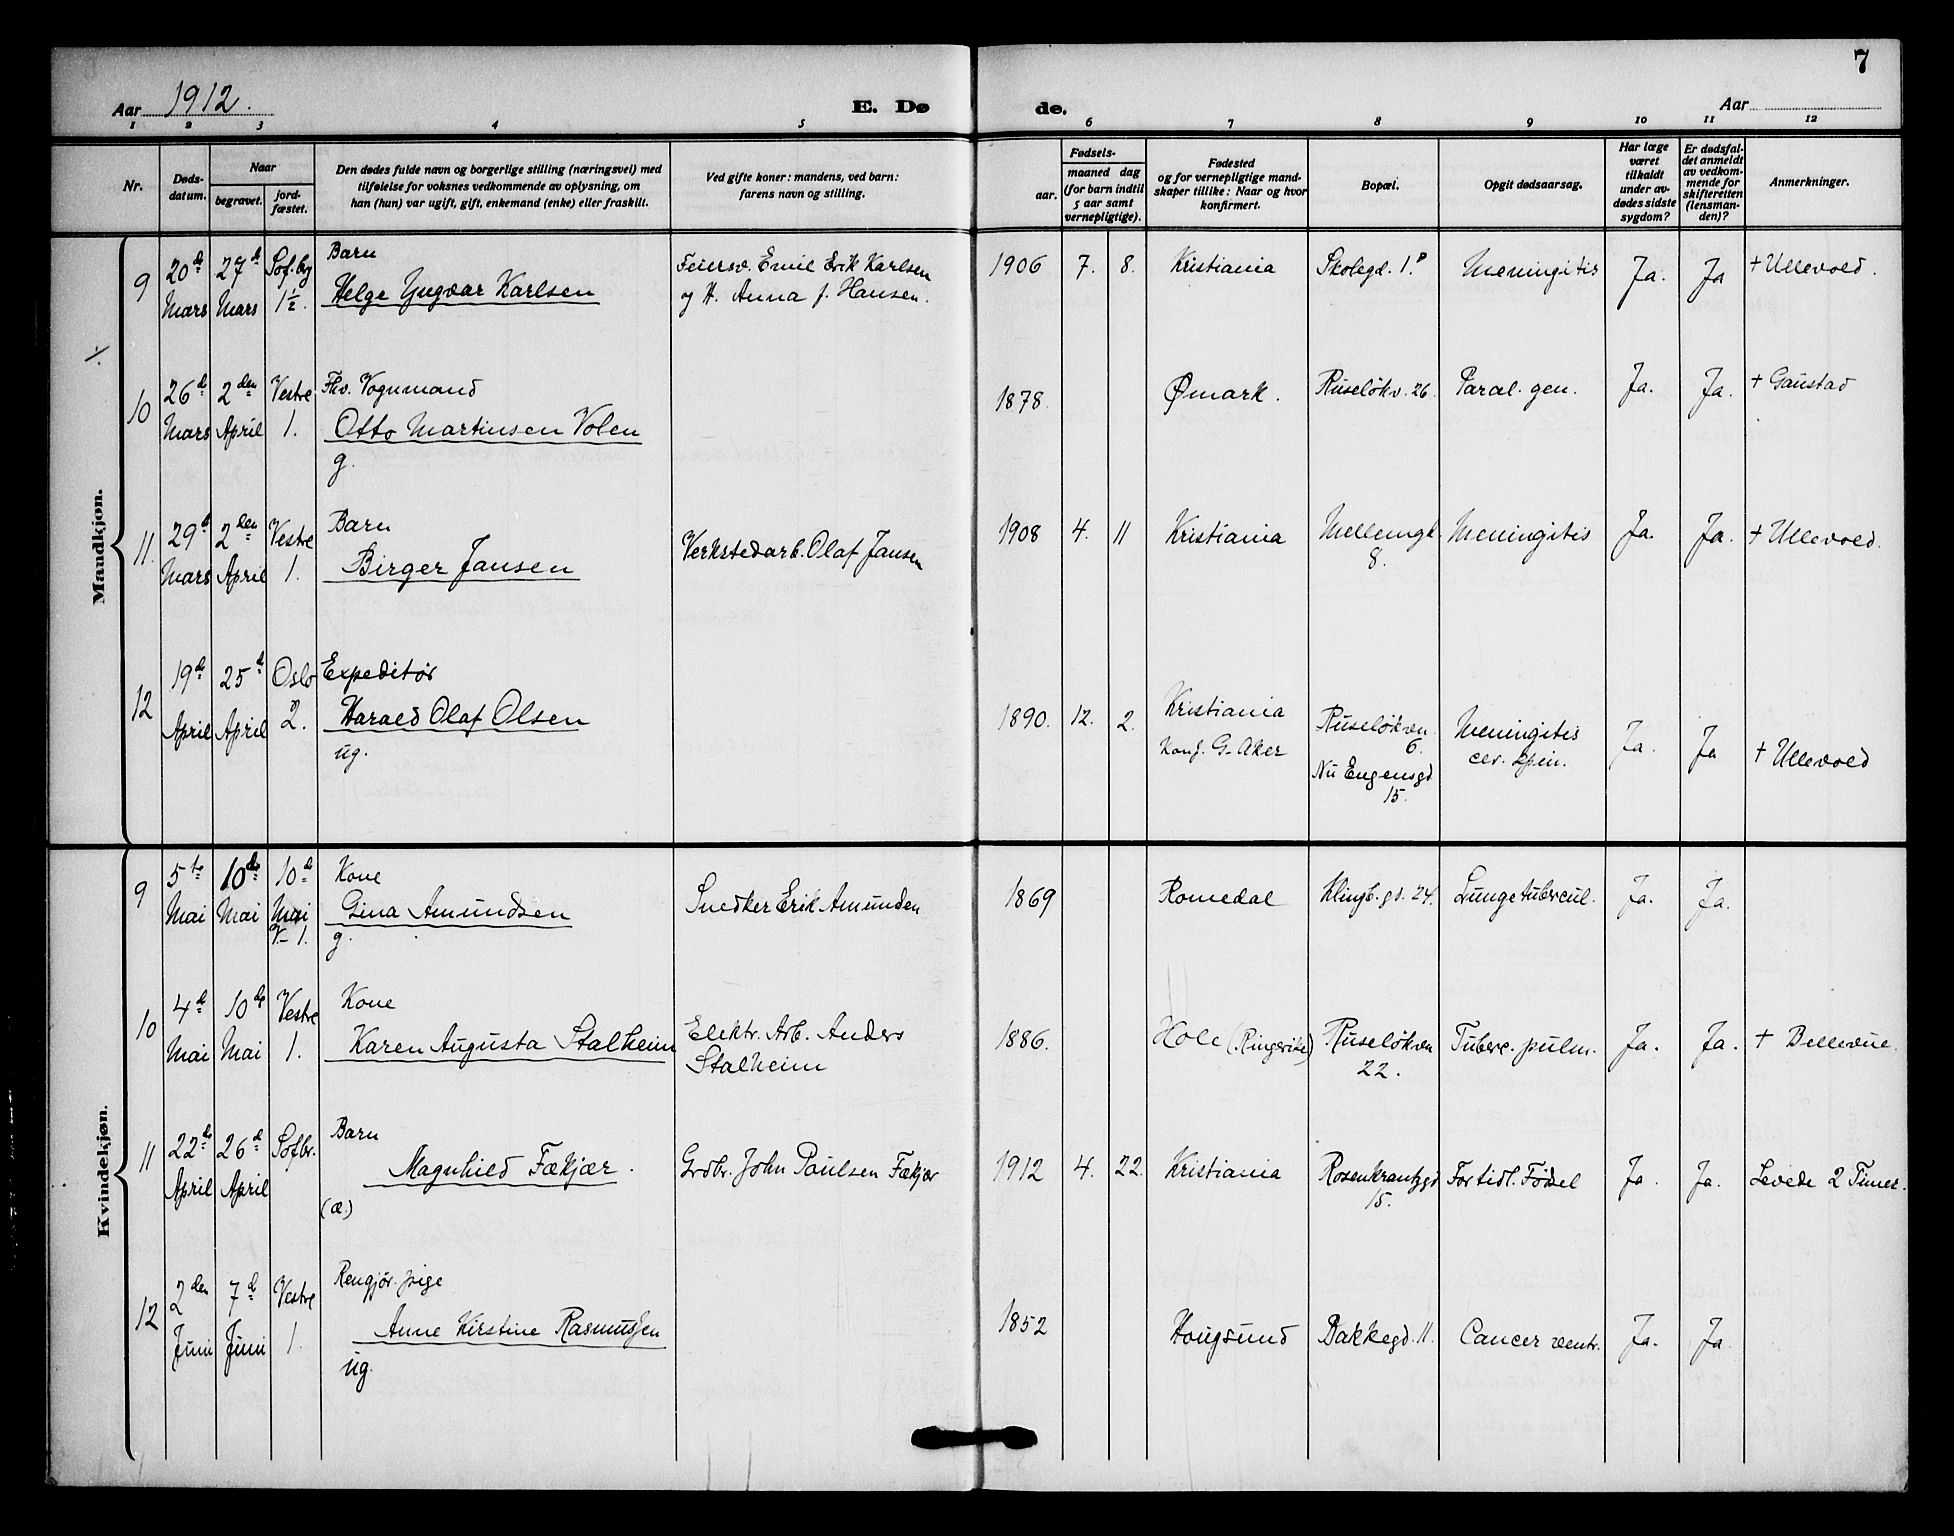 7
Aar 1912.
E. Dø
de.
Aar
1 2 3 4 5 6 7 8 9 10 11 12
Nr.
Døds-
datum.
Naar
begravet.
jord-
fæstet.
Den dødes fulde navn og borgerlige stilling (næringsvei) med
tilføielse for voksnes vedkommende av oplysning, om
han (hun) var ugift, gift, enkemand (enke) eller fraskilt.
Ved gifte koner: mandens, ved barn:
farens navn og stilling.
Fødsels-
aar.
maaned dag
(for barn indtil
5 aar samt
vernepligtige).
Fødested
og for vernepligtige mand-
skaper tillike: Naar og hvor
konfirmert.
Bopæl.
Opgit dødsaarsag.
Har læge
været
tilkaldt
under av-
dødes sidste
sygdom?
Er dødsfal-
det anmeldt
av vedkom-
mende for
skifteretten
(lensman-
den)?
Anmerkninger.
Mandkjøn.
9
20de
Mars
27de
Mars
Sof. bg
1½.
Barn
Helge Yngvar Karlsen
Feiersv. Emil Erik Karlsen
og H. Anna f. Hansen.
1906 7. 8.
Kristiania
Skolegd. 1.
Meningitis
Ja.
Ja
+ Ullevold.
10
26de
Mars
2den
April
Vestre
1.
Fhv. Vognmand
Otto Martinsen Volen
g.
1878
Ømark.
Ruseløkv. 26
Paral. gen.
Ja.
Ja.
+ Gaustad
11.
29de
Mars
2den
April
Vestre
1.
Barn
Birger Jansen
Verkstedarb. Olaf Jansen
1908 4. 11
Kristiania
Mellemgt.
8.
Meningitis
Ja.
Ja.
+ Ullevold.
12
19de
April
25de
April
Oslo
2.
Expeditør
Harald Olaf Olsen
ug.
1890. 12. 2.
Kristiania
Konf. G. Aker
Ruseløkven
6.
Nu Eugensgd
15.
Meningitis
cer. spin.
Ja.
Ja
+ Ullevold
Kvindekjøn.
9
5te
Mai
10de
Mai
10de
Mai
V. 1.
Kone
Gina Amundsen
g.
Snedker Erik Amunden
1869
Romedal
Klingb. gd. 24.
Lungetubercul.
Ja.
Ja.
10
4de
Mai
10de
Mai
Vestre
1.
Kone
Karen Augusta Stalheim
Elektr. Arb. Anders
Stalheim
1886.
Hole (Ringerike)
Ruseløkven
22.
Tuberc. pulm.
Ja.
Ja.
+ Bellevue.
11
22de
April
26de
April
Sofbr.
Barn
Magnhild Fækjær.
(æ.)
Grdbr. John Paulsen Fækjær
1912 4. 22.
Kristiania
Rosenkrantzgd
15.
For tidl. Fødsel
Ja.
Ja.
Levede 2 Timer.
12
2den
Juni
7de
Juni
Vestre
1.
Rengjør. pige
Anne Kirstine Rasmussen
ug.
1852
Hougsund
Bakkegd. 11.
Cancer ventr.
Ja.
Ja.